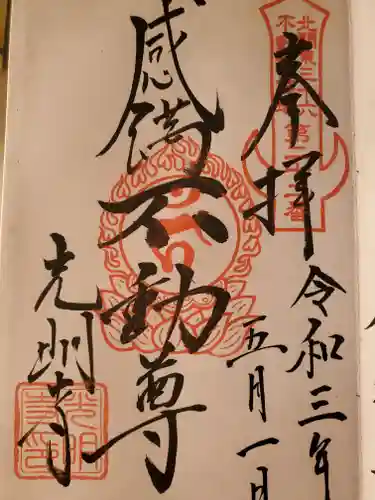 奉拝
令和三年
五月一日
不動尊
光明寺
北関東三十六
不動
第二十二番
光明
寺印